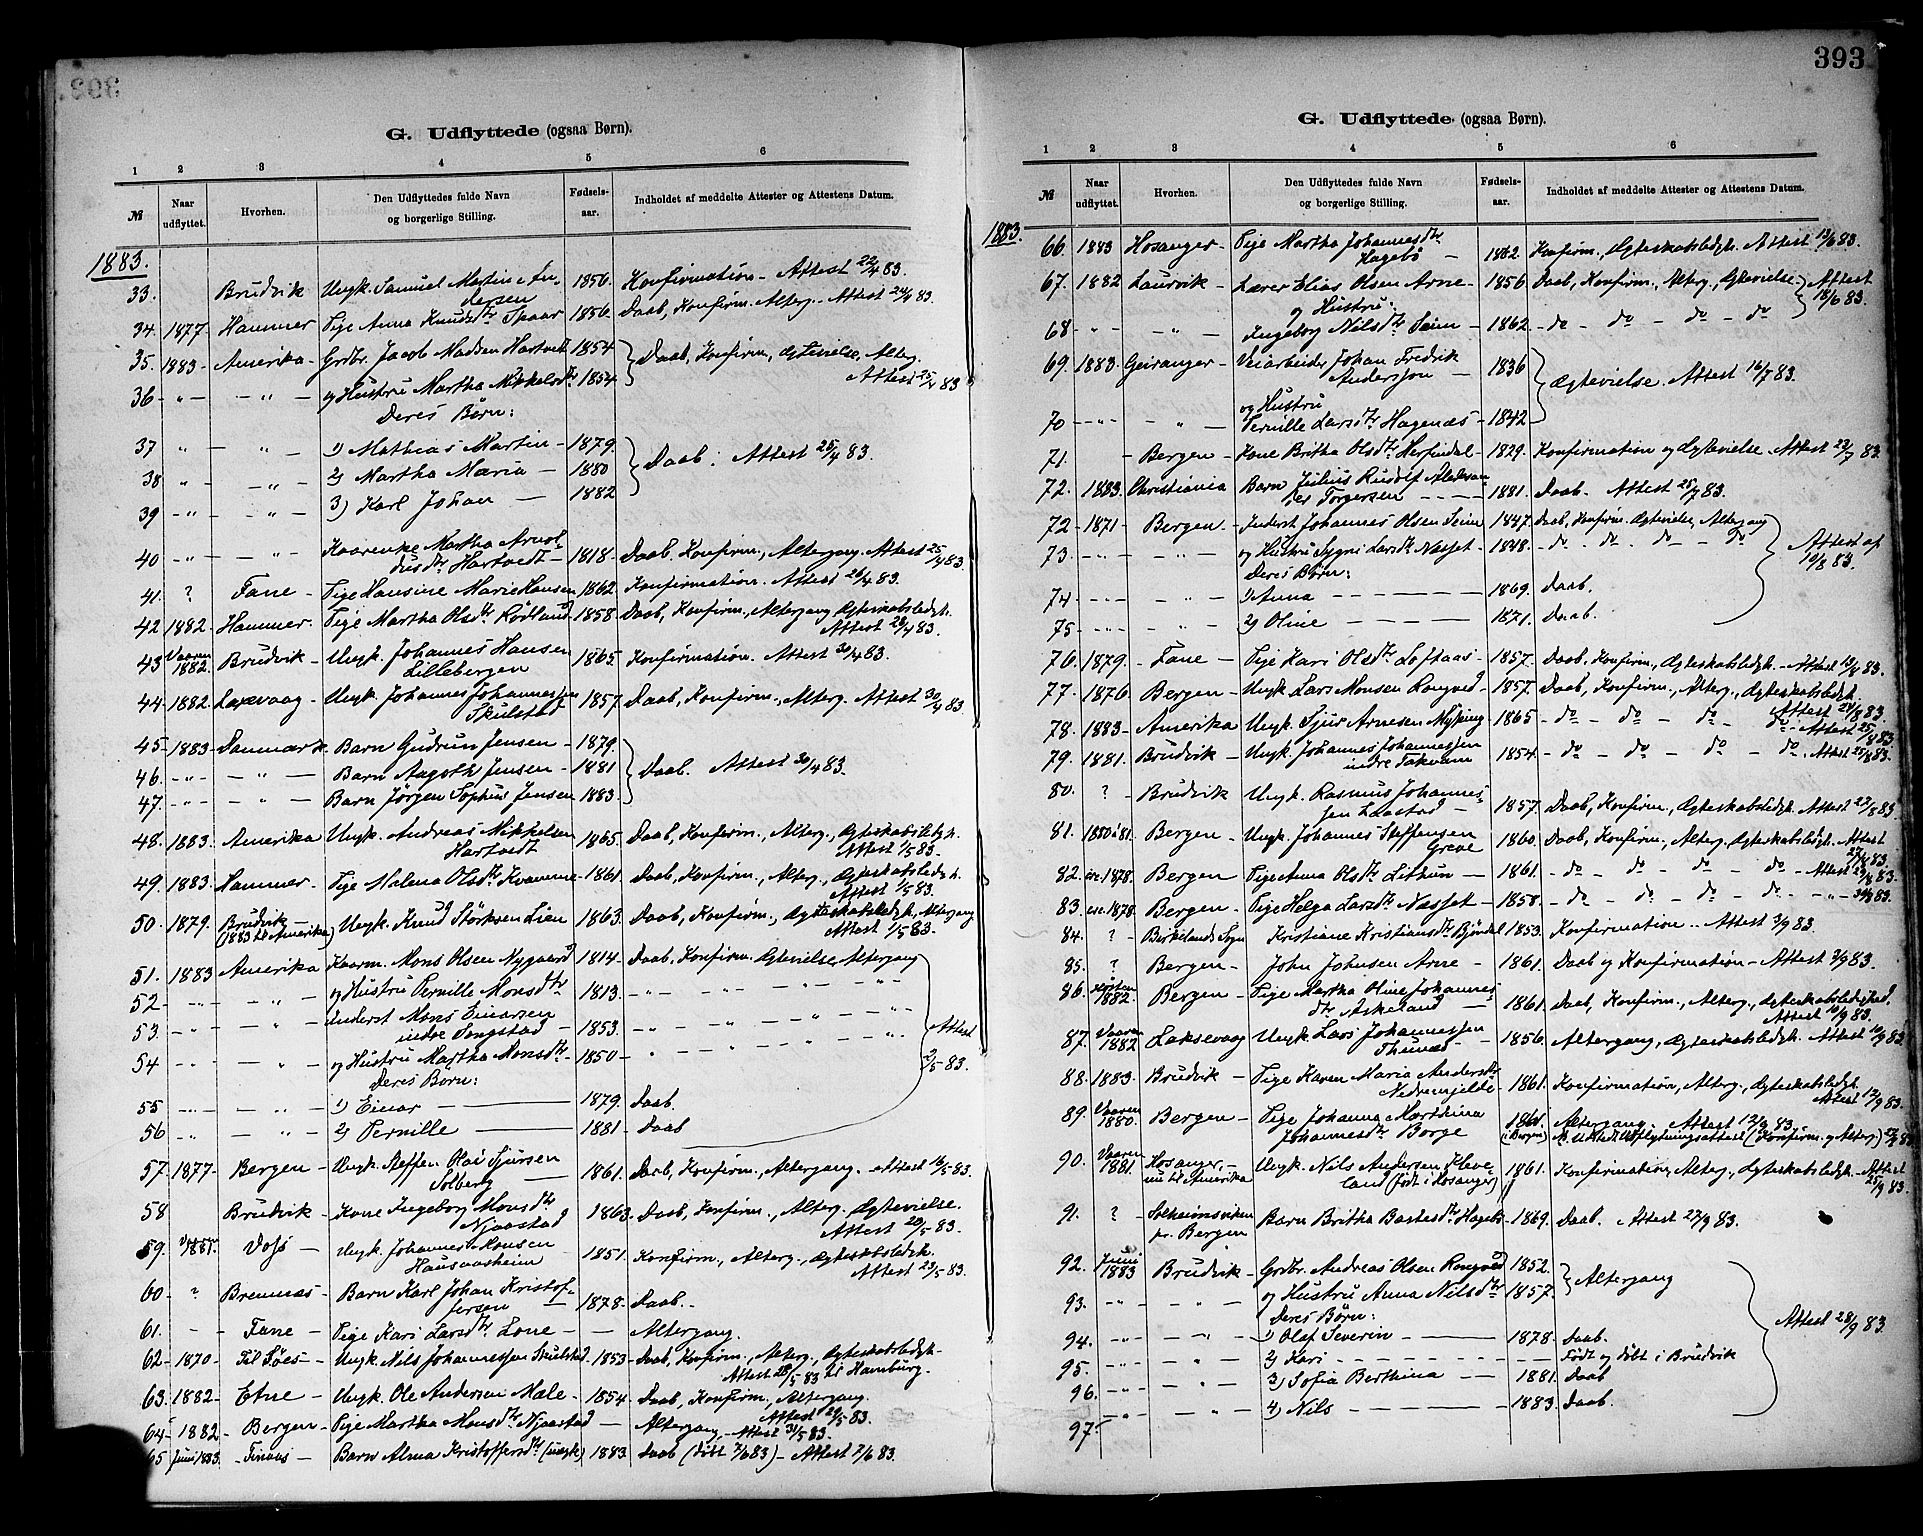 G. Udflyttede (ogsaa Børn).
1 2 3 4 5 6
№ Naar udflyttet. Hvorhen. Den Udflyttedes fulde Navn og borgerlige Stilling. Fødsels-aar. Indholdet af meddelte Attester og Attestens Datum.
1883.
33. Brudvik - Ungk. Samuel Martin An- 1856. Konfirmation - Attest 22/4 83.
dersen
34. 1877. Hammer - Pige Anna Knudsdtr Skaar 1856. Daab, Konfirm. Alterg. Attest 24/4 83.
35. 1883 - Amerika - Grdbr. Jacob Madsen Hartvedt 1854 Daab, Konfirm., Ægtevielse, Alterg.
36 - " - - " - og Hustru Martha Mikkelsdtr 1854 Attest 25/4 83
Deres Børn:
37 " - " - 1) Mathias Martin - 1879.
38 " - - " - 2) Martha Maria - 1880 Daab. Attest 25/4 83.
39 - " - - " - 3) Karl Johan - 1882
40 - " - - " - Kaarenke Martha Arnol-
dusdtr Hartvedt - 1818 - Daab. Konfirm., Altergang. Attest 25/4 83.
41. ? Fane - Pige Hansine Marie Hansen 1862 Konfirmation. Attest 26/4 83.
42 1882. Hammer. Pige Martha Olsdtr Rødland 1858 Daab, Konfirm., Altergang Ægteskabsledgh.
Attest 28/4 83.
43 Vaaren 1882. Brudvik - Ungk. Johannes Hansen
Lillebergen 1865. Konfirmation. Attest 30/4 83.
44. 1882. Laxevaag - Ungk. Johannes Johannessen
Skulstad 1857 Daab, Konfirm., Alterg. Attest 30/4 83
45 - 1883 - Danmark - Barn Gudrun Jensen - 1879.
46. - " - - " - Barn Aagoth Jensen - 1881 Daab. Attest 30/4 83.
47. - " - - " - Barn Jørgen Sophus Jensen 1883.
48. 1883. Amerika Ungk. Andreas Mikkelsen
Hartvedt 1865. Daab, Konfirm., Alterg., Ægteskabsledgh.
Attest 1/5 83.
49. 1883. Hammer. Pige Malena Olsdtr Kvamme 1861. Daab, Konfirm., Alterg., Ægteskabsledgh.
Attest 1/5 83.
50. 1879. Brudvik - (1883 til Amerika) Ungk. Knud Størksen Lien 1863. Daab, Konfirm., Ægteskabsledgh, Altergang
Attest 1/5 83.
51. 1883 Amerika Kaarm. Mons Olsen Nygaard 1814 - Daab, Konfirm. Ægtevielse, Altergang
52 - " - - " - og Hustru Pernille Monsdtr 1813. - " - - " -
53 - " - - " - Inderst Mons Einarsen
indre Songstad - 1853. - " - - " - Attest 2/5 83.
54 - " - " - og Hustru Martha Monsdtr - 1850 -
Deres Børn:
55 - " - - " - 1) Einar - 1879. Daab.
56 - " - - " - 2) Pernille - 1881 - Daab
57. 1877 - Bergen - Ungk. Steffen Olai Sjursen
Solberg - 1861. Daab, Konfirm., Altergang. Attest 16/5 83.
58 Brudvik - Kone Ingeborg Monsdtr
Njaastad 1863. Daab, Konfirm., Alterg. Ægtevielse.
Attest 20/5 83.
59. Voss - Ungk. Johannes Monsen
1851. Konfirm., Alterg., Ægteskabsledgh.
Attest 23/5 83.
60 - ? Bremnæs - Barn Karl Johan Kristof-
fersen - 1878 - Daab.
61. - - Fane - Pige Kari Larsdtr Lone - - Altergang.
62 - 1870 - Til Søes - Ungk. Nils Johannessen Skulstad 1853 - Daab, Konfirm., Alterg., Ægteskabsledgh.
Attest 28/5 83 til Hamburg.
63. 1882 - Etne - Ungk. Ole Andersen Mæle - 1854 Daab, Konfirm., Altergang.
Attest 29/5 83.
64 - 1882 - Bergen - Pige Martha Monsdtr Njaastad - Altergang. Attest 31/5 83.
65 Juni 1883. - Finaas - Barn Alma Kristoffersdtr (uægte) 1883 Daab (døbt 2/6 83) - Attest 2/6 83.
393
G. Udflyttede (ogsaa Børn).
1 2 3 4 5 6
№ Naar udflyttet. Hvorhen. Den Udflyttedes fulde Navn og borgerlige Stilling. Fødsels-aar. Indholdet af meddelte Attester og Attestens Datum.
1883.
66. 1883 Hosanger - Pige Martha Johannesdtr
Hagebø - 1862 Konfirm., Ægteskabsledgh. Attest 13/6 83.
67. 1882 Laurvik - Lærer Elias Olsen Arne - 1856 Daab, Konfirm., Alterg., Ægtevielse. Attest 18/6 83.
og Hustru:
68 - " - - " - Ingeborg Nilsdtr Seim - 1862 - do - do - do - do
69. 1883. Geiranger - Veiarbeider Johan Fredrik
Andersson - 1836 Ægtevielse. Attest 16/7 83.
og Hustru
70 - " - " - Pernille Larsdtr Hagenæs - 1842
71. - Bergen - Kone Britha Olsdtr Herfindal - 1829. Konfirmation og Ægtevielse. Attest 23/7 83.
72. 1883. Christiania Barn Julius Rudolf Aleksan-
der Torgersen - 1881. Daab. Attest 25/7 83.
72 - 1871 - Bergen - Inderst Johannes Olsen Seim 1847. Daab, Konfirm. Ægtevielse, Altergang
73. - " - " - og Hustru Sygni Larsdtr Nasset - 1848. - do. do. do - do Attest af 10/8 83.
Deres Børn:
74 - " - " - 1) Anna - 1869. Daab.
75 - " - " - 2) Oline - 1871. Daab.
76. 1879. - Fane - Pige Kari Olsdtr Loftaas - 1857. Daab, Konfirm., Ægteskabsledgh. - Attest 13/8 83.
77. 1876 Bergen - Ungk. Lars Monsen Rongved - 1857. Daab, Konfirm., Alterg., Ægteskabsledgh.
Attest 24/8 83.
78. 1883 - Amerika Ungk. Sjur Arnesen Myking 1865 - do - do - do - do - Attest 25/8 83
79. 1881. Brudvik - Ungk. Johannes Johannessen
indre Takvam 1854 - do - do - do - do. Attest 27/8 83.
80. ? Brudvik Ungk. Rasmus Johannes-
sen Laastad - 1857. Daab, Konfirm., Ægteskabsledgh. Attest 27/8 83
81. 1880 à 81. Bergen - Ungk. Johannes Steffensen
Greve 1860. Daab, Konfirm., Alterg. Ægteskabsledgh. Attest 27/8 83.
82. ca. 1878. Bergen Pige Anna Olsdtr Lithun - 1861. - do do - do - do - Attest 29/8 83.
83. ca. 1878. Bergen - Pige Helga Larsdtr Nasset - 1858. - do - do - do - do - " - 31/8 83.
84. ? Birkelands Sogn Kristiane Kristiansdtr Bjøndal 1853. Konfirmation. Attest 3/9 83.
85. ? Bergen - John Johnsen Arne - 1861. Daab og Konfirmation - Attest 9/9 83.
86. Høsten 1882. Bergen - Pige Martha Oline Johannes-
dtr Askeland - 1861. Daab, Konfirm., Alterg., Ægteskabsledighed.
Attest 10/9 83.
87. Vaaren 1882 Laksevaag Ungk. Lars Johannessen
Thunæs - 1856. Altergang, Ægteskabsledgh. Attest 10/9 83
88. 1883. Brudvik - Pige Karen Maria Andersdtr
Nedremjelde - 1861. Konfirmation, Alterg., Ægteskabsledgh.
Attest 12/9 83.
89. Vaaren 1880. Bergen - Pige Johanna Marthina
Johannesdtr Borge 1861 (i Bergen) Altergang. Attest 12/9 83.
Udflytningsattest (Konfirm. og Alterg.)
90. Vaaren 1881. Hosanger - nu til Amerika Ungk. Nils Andersen Kleve-
land (født i Hosanger) 1861. Konfirmation, Alterg., Ægteskabsledgh. - Attest 25/9 83.
91. ? Solheimsviken pr. Bergen Barn Britha Bastesdtr Hagebø 1869. Daab. Attest 27/9 83.
92. Juni 1883 Brudvik - Grdbr. Andreas Olsen Rongved 1852. Altergang
93. - " - " - og Hustru Anna Nilsdtr 1857.
Deres Børn:
94. - " - - " - 1) Olaf Severin - 1878. Daab. Attest 28/9 83.
95. - " - " - 2) Kari - - Født og døbt i Brudvik
96. - " - " - 3) Sofia Berthina - 1881. Daab
97. - " - " - 4) Nils - 1883. Daab.